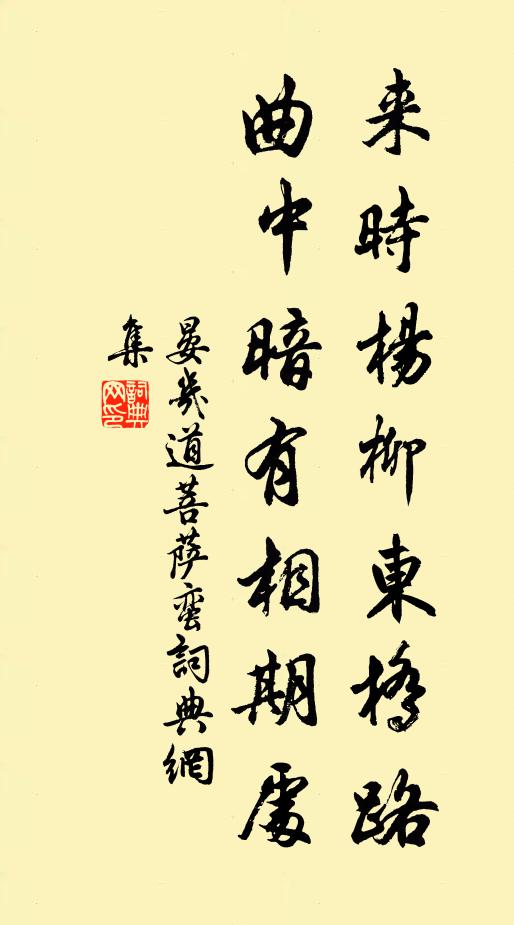 来時楊柳東橋路
曲中暗有相期處
晏幾道菩薩蠻詞典網
集
詞典
网印